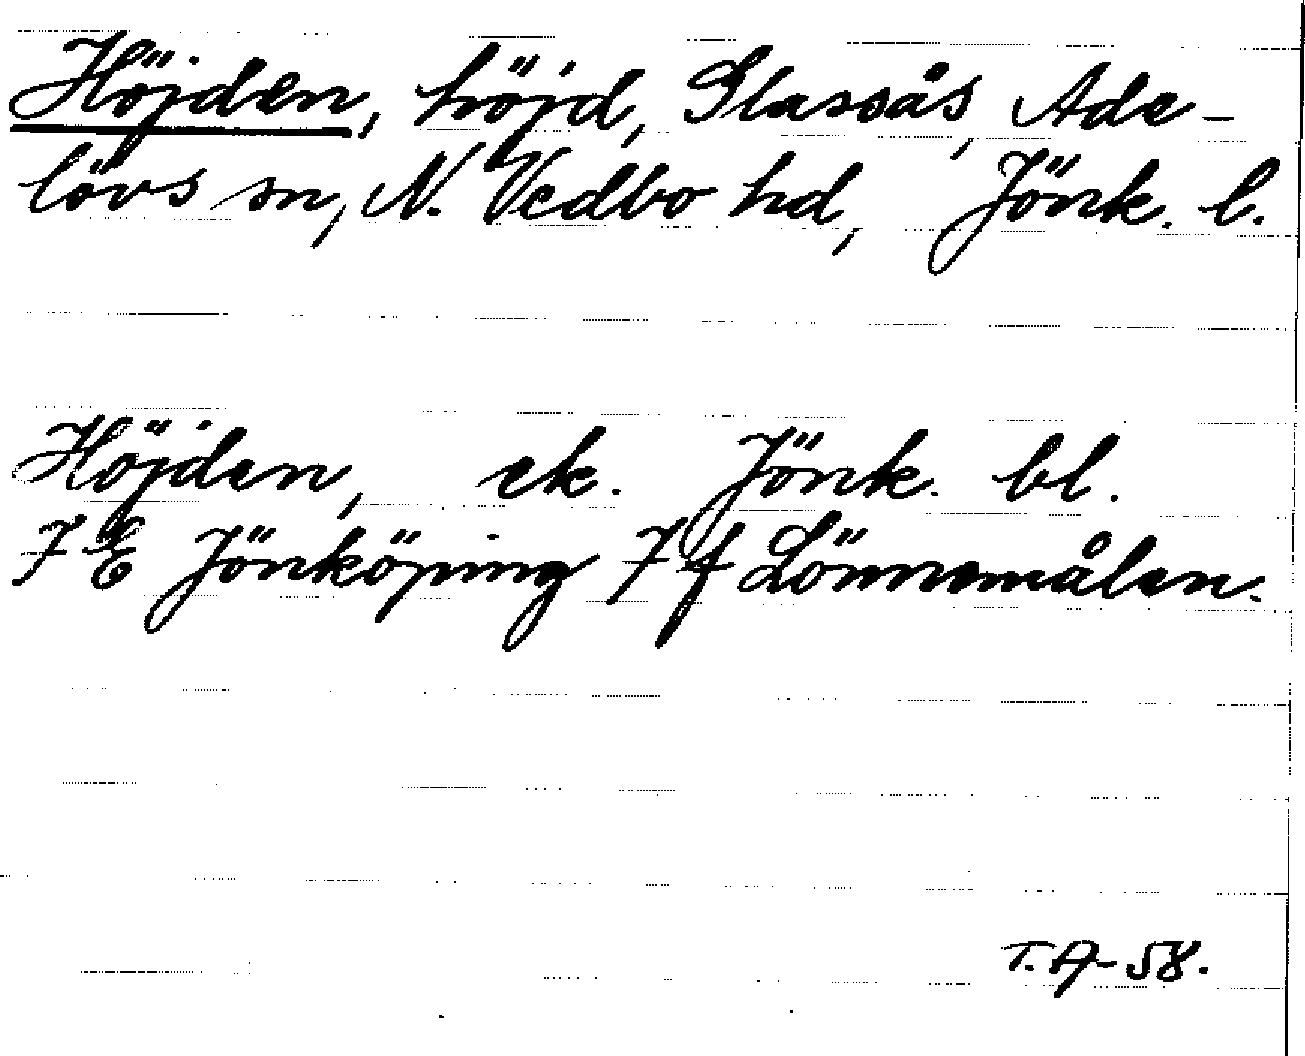 Höjden, höjd, Slassås, Ade-
lövs sn, N. Vedbo hd, Jönk. l.
Höjden, ek. Jönk. bl.
7 E Jönköping 7 f Lönnemålen.
T. A-58.